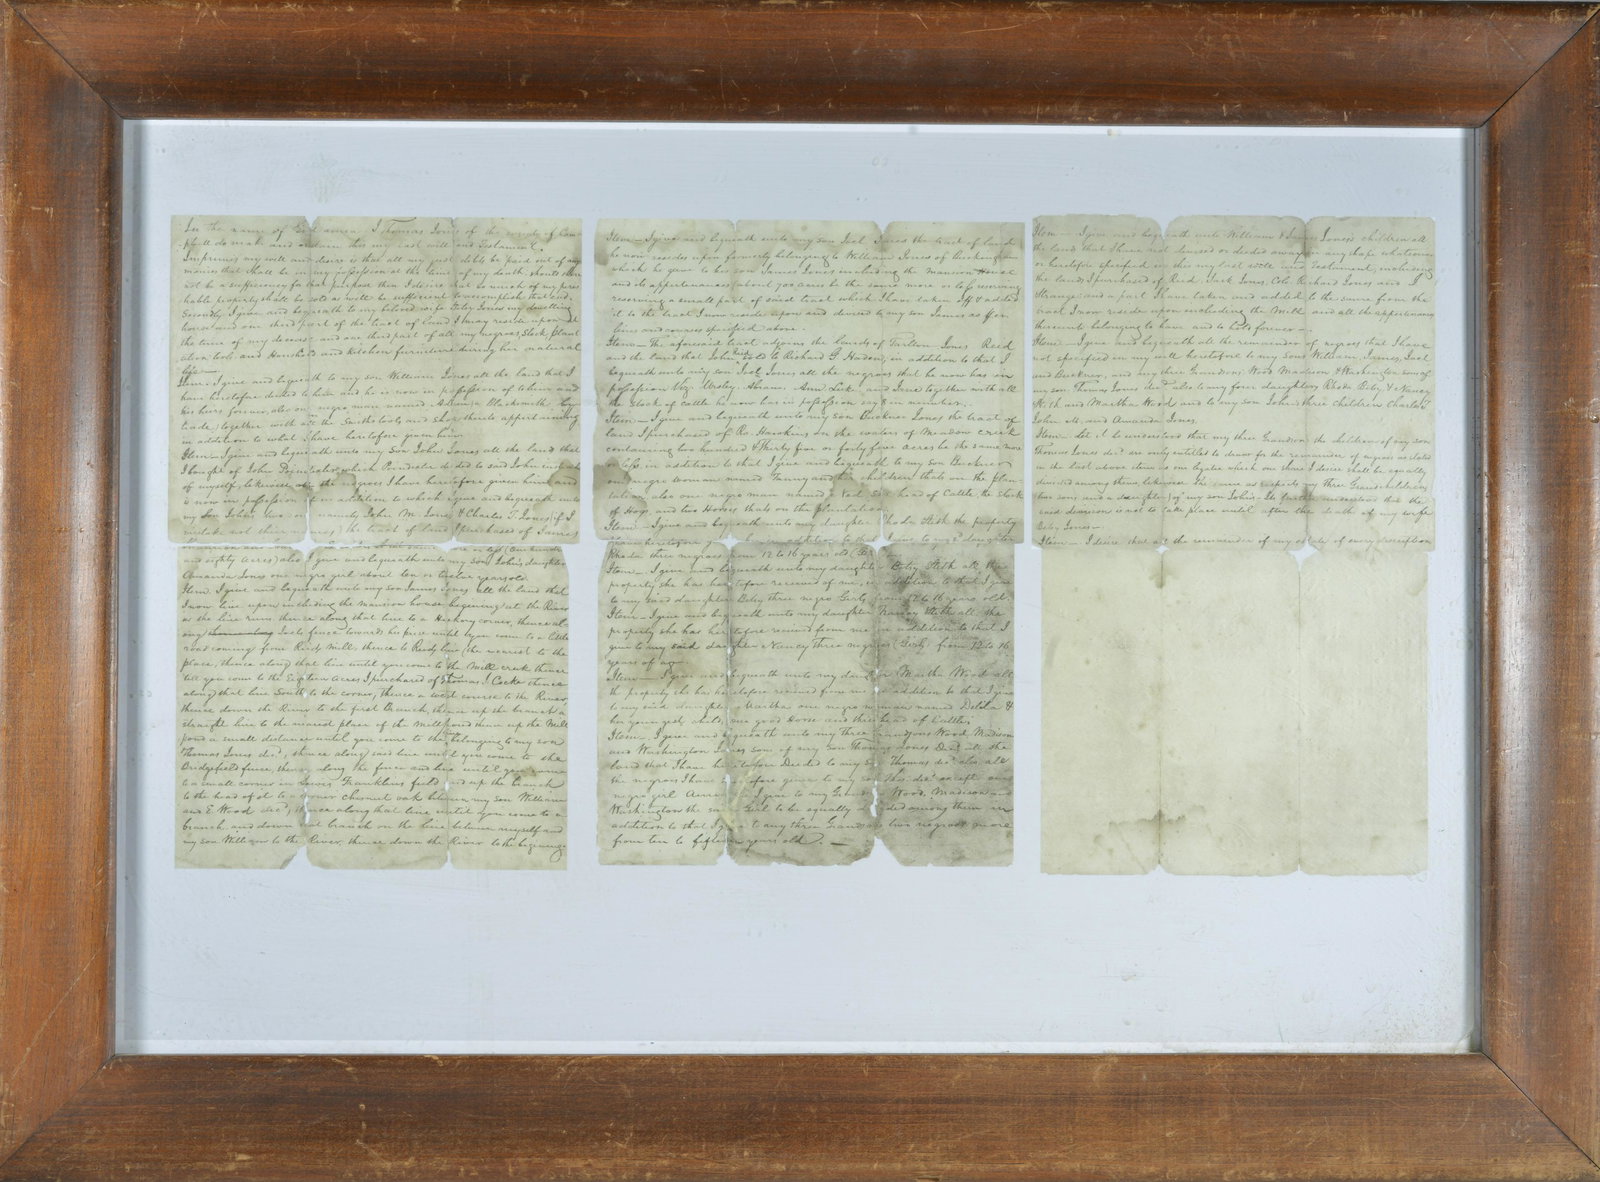 In the name of God amen. I Thomas Jones of the county of Cam-
-pbell do make and ordain this my last will and Testament.
Imprimis my will and desire is that all my just debts be paid out of any
monies that shall be in my possession at the time of my death should there
not be a sufficiency for that purpose then I desire that so much of my peris
hable property shall be sold as will be sufficient to accomplish that end.
Secondly, I give and bequeath to my beloved wife Betsy Jones my dwelling
house and one third part of the tract of land I may reside upon at
the time of my decease and one third part of all my negroes, Stock, Plant
ation tools and Household and kitchen furniture during her natural
life —
Item. I give and bequeath to my son William Jones all the land that I
have heretofore deeded to him and he is now in possession of to him and
his heirs forever, also one negro man named a Blacksmith by
trade, together with all the Smiths tools and Shop thereto appertaining
in addition to what I have heretofore given him
Item — I give and bequeath unto my Son John Jones all the land that
I bought of John which deeded to said John instead
of myself, likewise all the negroes I have heretofore given him and
is now in possession of in addition to which I give and bequeath unto
my Son John's two sons namely John M. Jones & Charles T. Jones (if I
mistake not their names) the tract of land I purchased of James
and eighty acres) also I give and bequeath unto my Son John's daughter
Amanda Jones one negro girl about ten or twelve years old
Item. I give and bequeath unto my son James Jones all the land that
I now live upon including the mansion house beginning at the River
as the line runs thence along that line to a Hickory corner, thence al-
ong Jacks fence towards his pece until you come to a little
road coming from Reids Mill, thence to Reids line the nearest to the
place, thence along that line until you come to the Mill creek thence
till you come to the Eighteen acres I purchased of Thomas I. Cocke thence
along that line South to the corner, thence a west course to the River,
thence down the River to the first Branch, thence up the branch a
straight line to the nearest place of the Mill pond thence up the Mill
pond a small distance until you come to the line belonging to my son
Thomas Jones decd, thence along said line until you come to the
Bridgefield fence, thence along the fence and line until you come
to a small corner in Lewis Franklins field and up the branch
to the head of it to a corner chesnut oak between my son William
and E. Wood decd, thence along that line until you come to a
branch and down that branch on the line between myself and
my son William to the River, thence down the River to the beginning
Item — I give and bequeath unto my son Joel Jones the tract of land
he now resides upon formerly belonging to William Jones of Buckingham
which he gave to his son James Jones including the mansion House
and its appurtenances about 700 acres be the same more or less reserving
reserving a small part of said tract which I have taken off & added
it to the tract I now reside upon and devised to my son James as per
lines and courses specified above.
Item — The aforesaid tract adjoins the lands of Tarlton Jones Reid
and the land that John Reid sold to Richard G Haden; in addition to that I
bequeath unto my son Joel Jones all the negroes that he now has in
possession Viz. Wesley, Abram, Ann, Lick, and Irene together with all
the Stock of Cattle he now has in possession say 8 in number.
Item — I give and bequeath unto my son Buckner Jones the tract of
land I purchased of Ro. Hawkins on the waters of Meadow creek
containing two hundred & thirty five or forty five acres be the same more
or less in addition to that I give and bequeath to my son Buckner
one negro woman named Fanny and her children thats on the plan-
tation also one negro man named head of Cattle, the Stock
of Hogs, and two Horses thats on the plantation
Item — I give and bequeath unto my daughter Rhoda Stith the property
in addition to that I give to my sd daughter
Rhoda three negroes from 12 to 16 years old
Item — I give and bequeath unto my daughter Betsy Stith all the
property she has heretofore received of me, in addition to that I give
to my said daughter Betsy three negro Girls from 12 to 16 years old.
Item — I give and bequeath unto my daughter Nancy Stith all the
property she has heretofore received from me in addition to that I
give to my said daughter Nancy three negroes (Girls) from 12 to 16
years of age
Item — I give and bequeath unto my daughter Martha Wood all
the property she has heretofore received from me in addition to that I give
to my said daughter Martha one negro woman named Delila &
her youngest child, one good Horse and three head of Cattle.
Item — I give and bequeath unto my three Grandsons Wood, Madison
and Washington Jones sons of my son Thomas Jones Decd all the
land that I have heretofore Deeded to my son Thomas decd also all
the negroes I have heretofore given to my son Thos. decd except one
negro girl I give to my Grandsons Wood, Madison and
Washington the said Girl to be equally divided among them in
addition to that I give to my three Grandsons two negroes more
from ten to fifteen years old. —
Item — I give and bequeath unto William & James Jones's children all
the land that I have not devised or deeded away in any shape whatever
or heretofore specified in this my last will and testament, including
the lands I purchased of Reid, Jack Jones, Colo. Richard Jones and J
Strange and a part I have taken and added to the same from the
tract I now reside upon including the Mill and all the appurtenances
thereunto belonging to have and to hold forever —
Item — I give and bequeath all the remainder of negroes that I have
not specified in my will heretofore to my Sons William, James, Joel
and Buckner, and my three Grandsons; Wood Madison & Washington sons of
my son Thomas Jones decd also to my four daughters Rhoda Betsy & Nancy
Stith and Martha Wood and to my son John's three children Charles T.
John M. and Amanda Jones.
Item — Let it be understood that my three Grandsons the children of my son
Thomas Jones decd are only entitled to draw for the remainder of negroes as stated
in the last above item as one legatee which one share I desire shall be equally
devided among them likewise the same as respects my three Grandchildren
(two sons and a daughter) of my son John's. Be further understood that the
said division is not to take place until after the death of my wife
Betsy Jones —
Item — I desire that all the remainder of my estate of every description